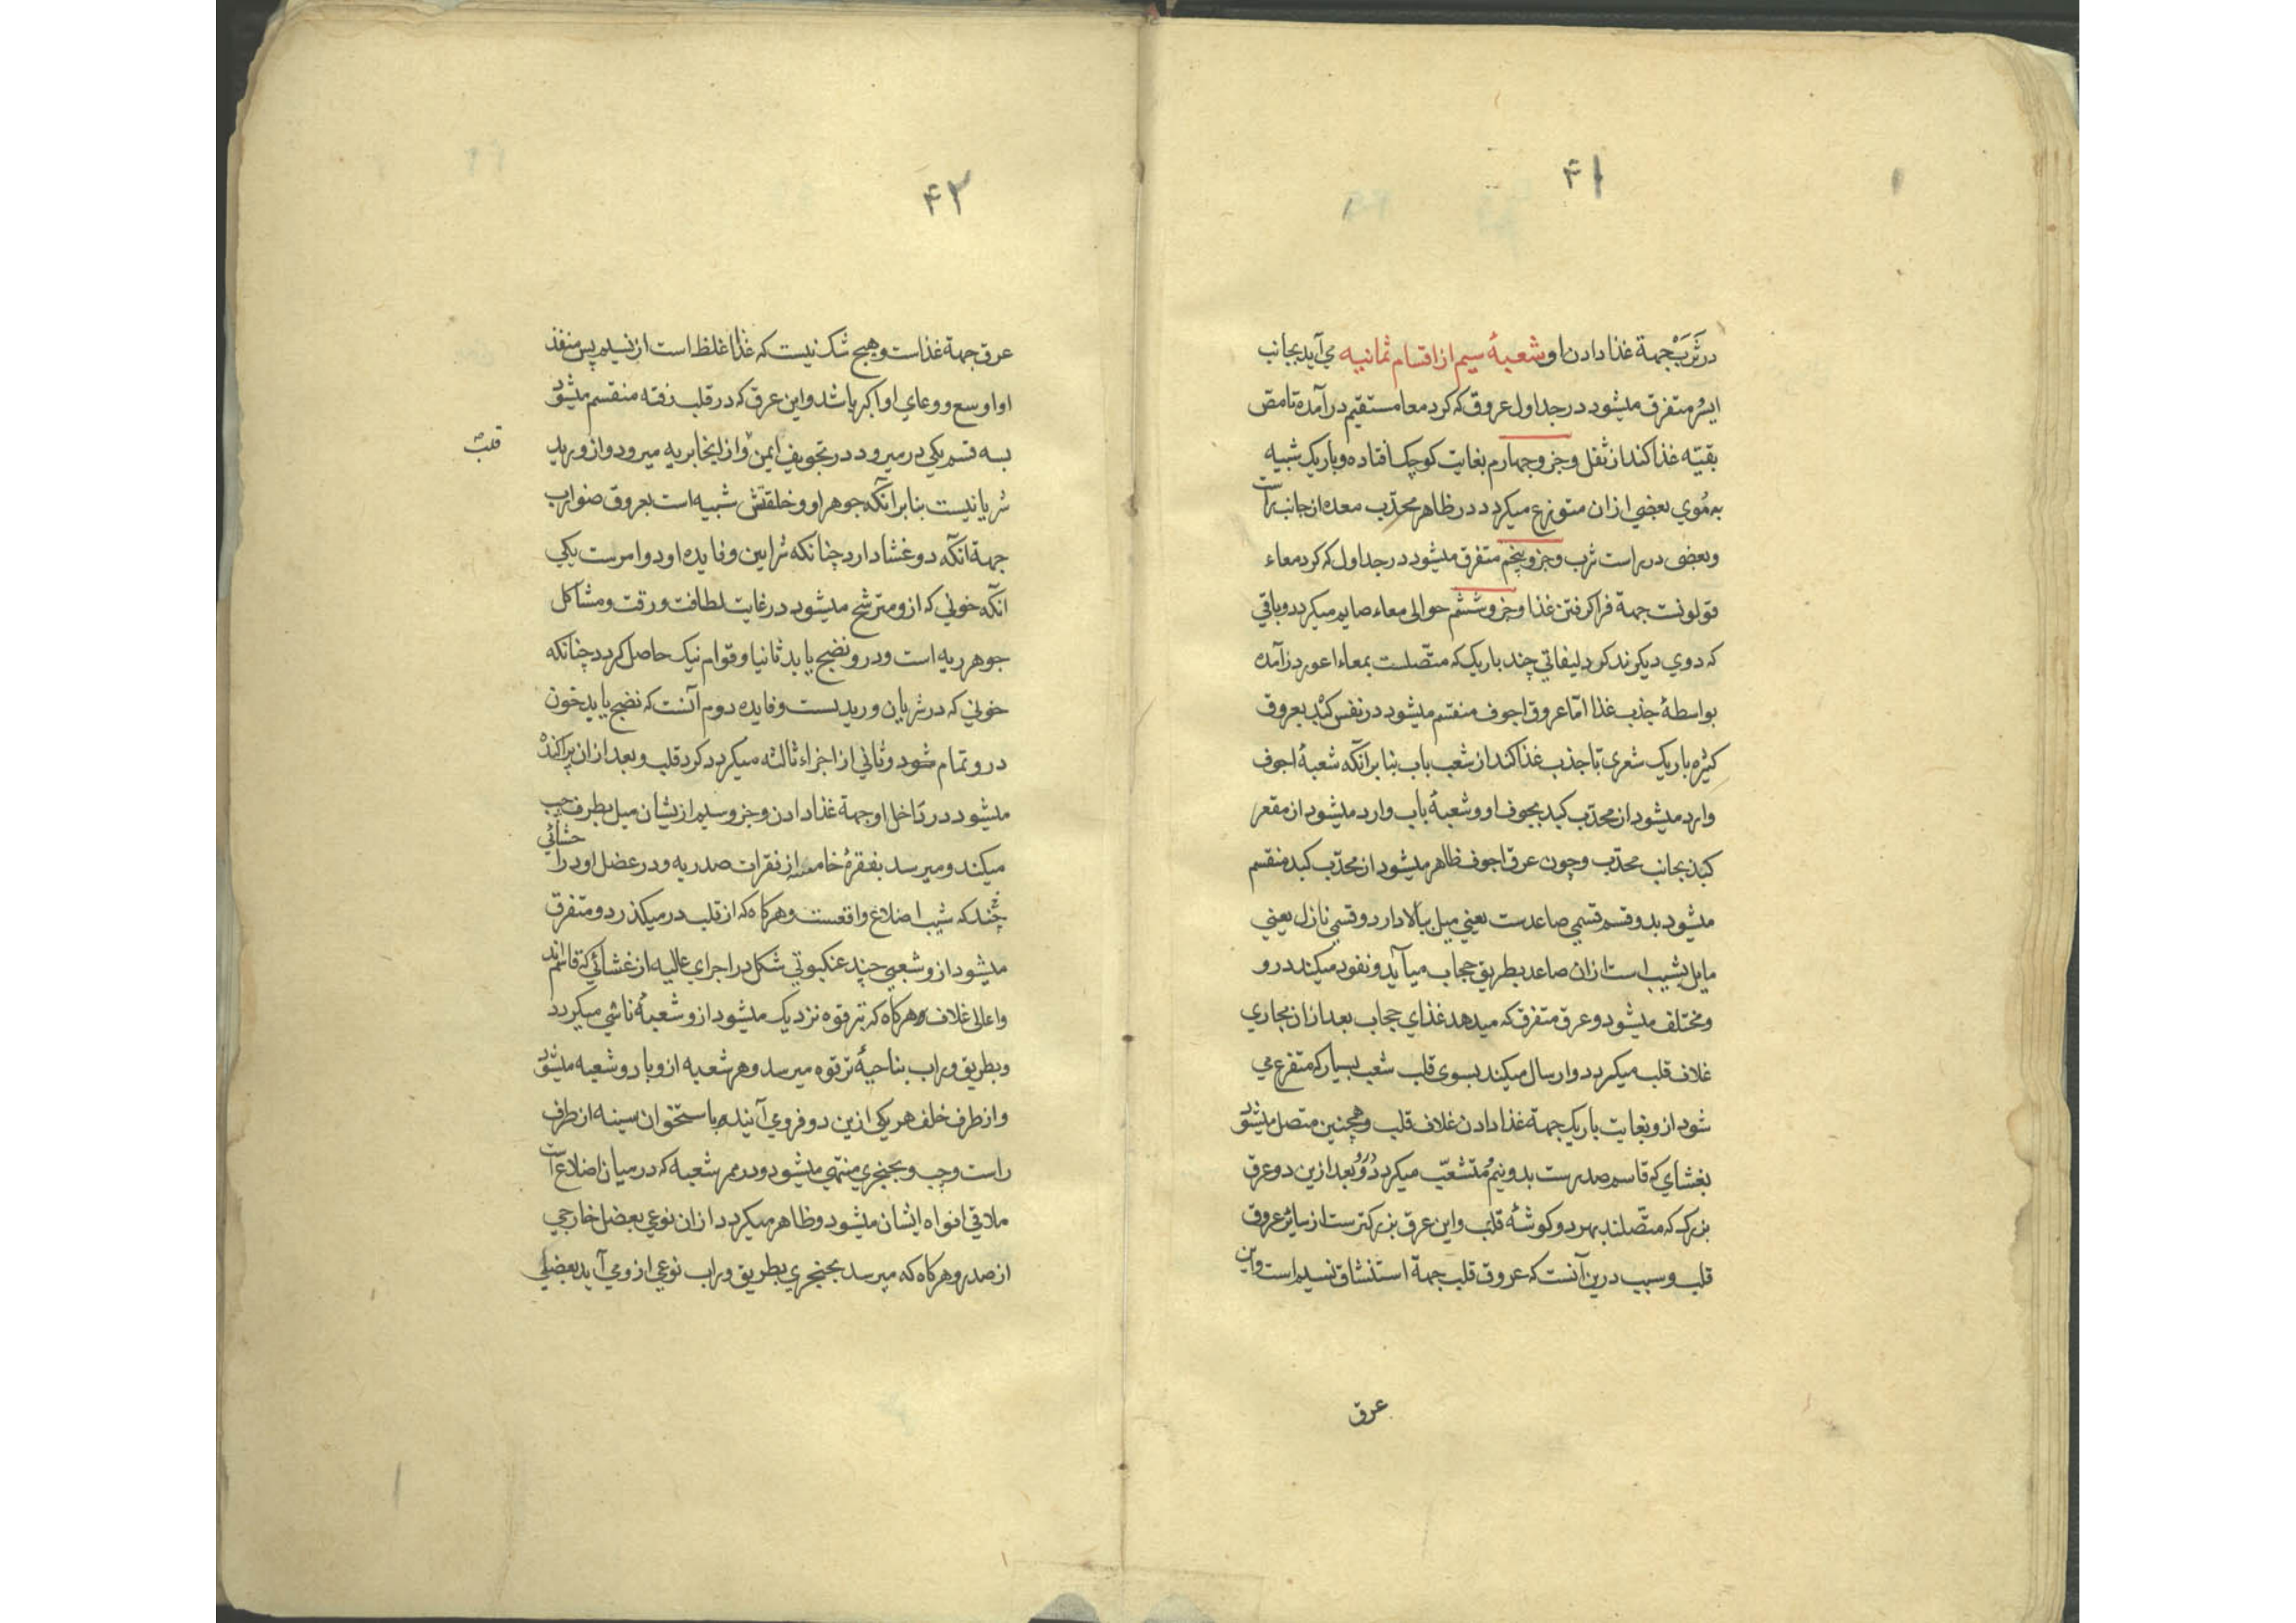 ۴۱
در ثرب جهة غذا دادن او شعبهٔ سیم از اقسام ثمانیه می آید بجانب
ایسر متفرق میشود در جداول عروق که کرد معا مستقیم در آمده تا مص
بقیّه غذا کند از ثفل و جزو چهارم بغایت کوچک افتاده و باریک شبیه
به مُوی بعضی ازان متوزع میکردد در ظاهر محدّب معده از جانب راست
و بعضی در راست ثرب و جزو پنجم متفرق میشود در جداول که کرد معاء
قولونست جهة فرا کرفتن غذا و جزو ششم حوالی معاء صایم میکردد و باقی
که دوی دیکرند کرد لیفاتی چند باریک که متّصلست بمعاء اعور در آمده
بواسطهٔ جذب غذا امّا عروق اجوف منقسم میشود در نفس کبد بعروق
کثیره باریک شعری تا جذب غذا کند از شعب باب بنا برانکه شعبهٔ اجوف
وارد میشود از محدّب کبد بجوف او و شعبهٔ باب وارد میشود از مقعر
کبد بجانب محدّب و چون عرق اجوف ظاهر میشود از محدّب کبد منقسم
میشود بدو قسم قسمی صاعدست یعنی میل ببالا دارد و قسمی نازل یعنی
مایل بشیب است ازان صاعد بطریق حجاب میآید و نفود میکند درو
و مختلف میشود دو عرق متفرق که میدهد غذای حجاب بعد ازان مجاری
غلاف قلب میکردد و ارسال میکند بسوی قلب شعب بسیار که متفرع می
شود ازو بغایت باریک جهة غذا دادن غلاف قلب و همچنین متصل میشود
بغشای که قاسم صدرست بدو نیم و متشعّب میکردد درو و بعد ازین دو عرق
بزرک که متّصلند بهر دو کوشهٔ قلب و این عرق بزرکترست از سائر عروق
قلب و سبب درین آنست که عروق قلب جهة استنشاق نسیم است و این
عرق
۴۲
عرق جهة غذاست و هیچ شک نیست که غذا اغلظ است از نسیم پس منفذ
او اوسع و وعای او اکبر باشد و این عرق که در قلب رفته منقسم میشود
بسه قسم یکی در میرود در تجویف ایمن و از اینجا بریه میرود و از ورید
قلب
شریانیست بنا برآنکه جوهر او و خلقتش شبیه است بعروق ضوارب
جهة آنکه دو غشا دارد چنانکه شرایین و فایده او دو امرست یکی
انکه خونی که ازو مترشح میشود در غایت لطافت و رقت و مشاکل
جوهر ریه است و درو نضج یابد ثانیا و قوام نیک حاصل کردد چنانکه
خونی که در شریان وریدیست و فایده دوم آنست که نضج یابد خون
درو تمام شود و ثانی از اجزاء ثالثه میکردد کرد قلب و بعد ازان پراکنده
میشود در داخل او جهة غذا دادن و جزو سیم ازیشان میل بطرف چپ
میکند و میرسد بفقرهٔ خامسه از فقرات صدریه و در عضل او درآ
چند که شیب اضلاع واقعست و هرکاه که از قلب در میکذرد و متفرق
میشود ازو شعبی چند عنکبوتی شکل در اجزای عالیه از غشائی که قاسم اند
و اعالی غلاف و هرکاه که ترقوه نزدیک میشود ازو شعبهٔ ناشی میکردد
و بطریق وراب بناحیهٔ ترقوه میرسد و هر شعبه ازو با دو شعبه میشود
و از طرف خلف هر یکی ازین دو فرو می آیند با ستخوان سینه از طرف
راست و چپ و بحنجری منتهی میشود و در ممر شعبه که در میان اضلاع است
ملاقی افواه ایشان میشود و ظاهر میکردد ازان نوعی بعضل خارجی
از صدر و هرکاه که میرسد بحنجری بطریق وراب نوعی ازو می آید بعضلی